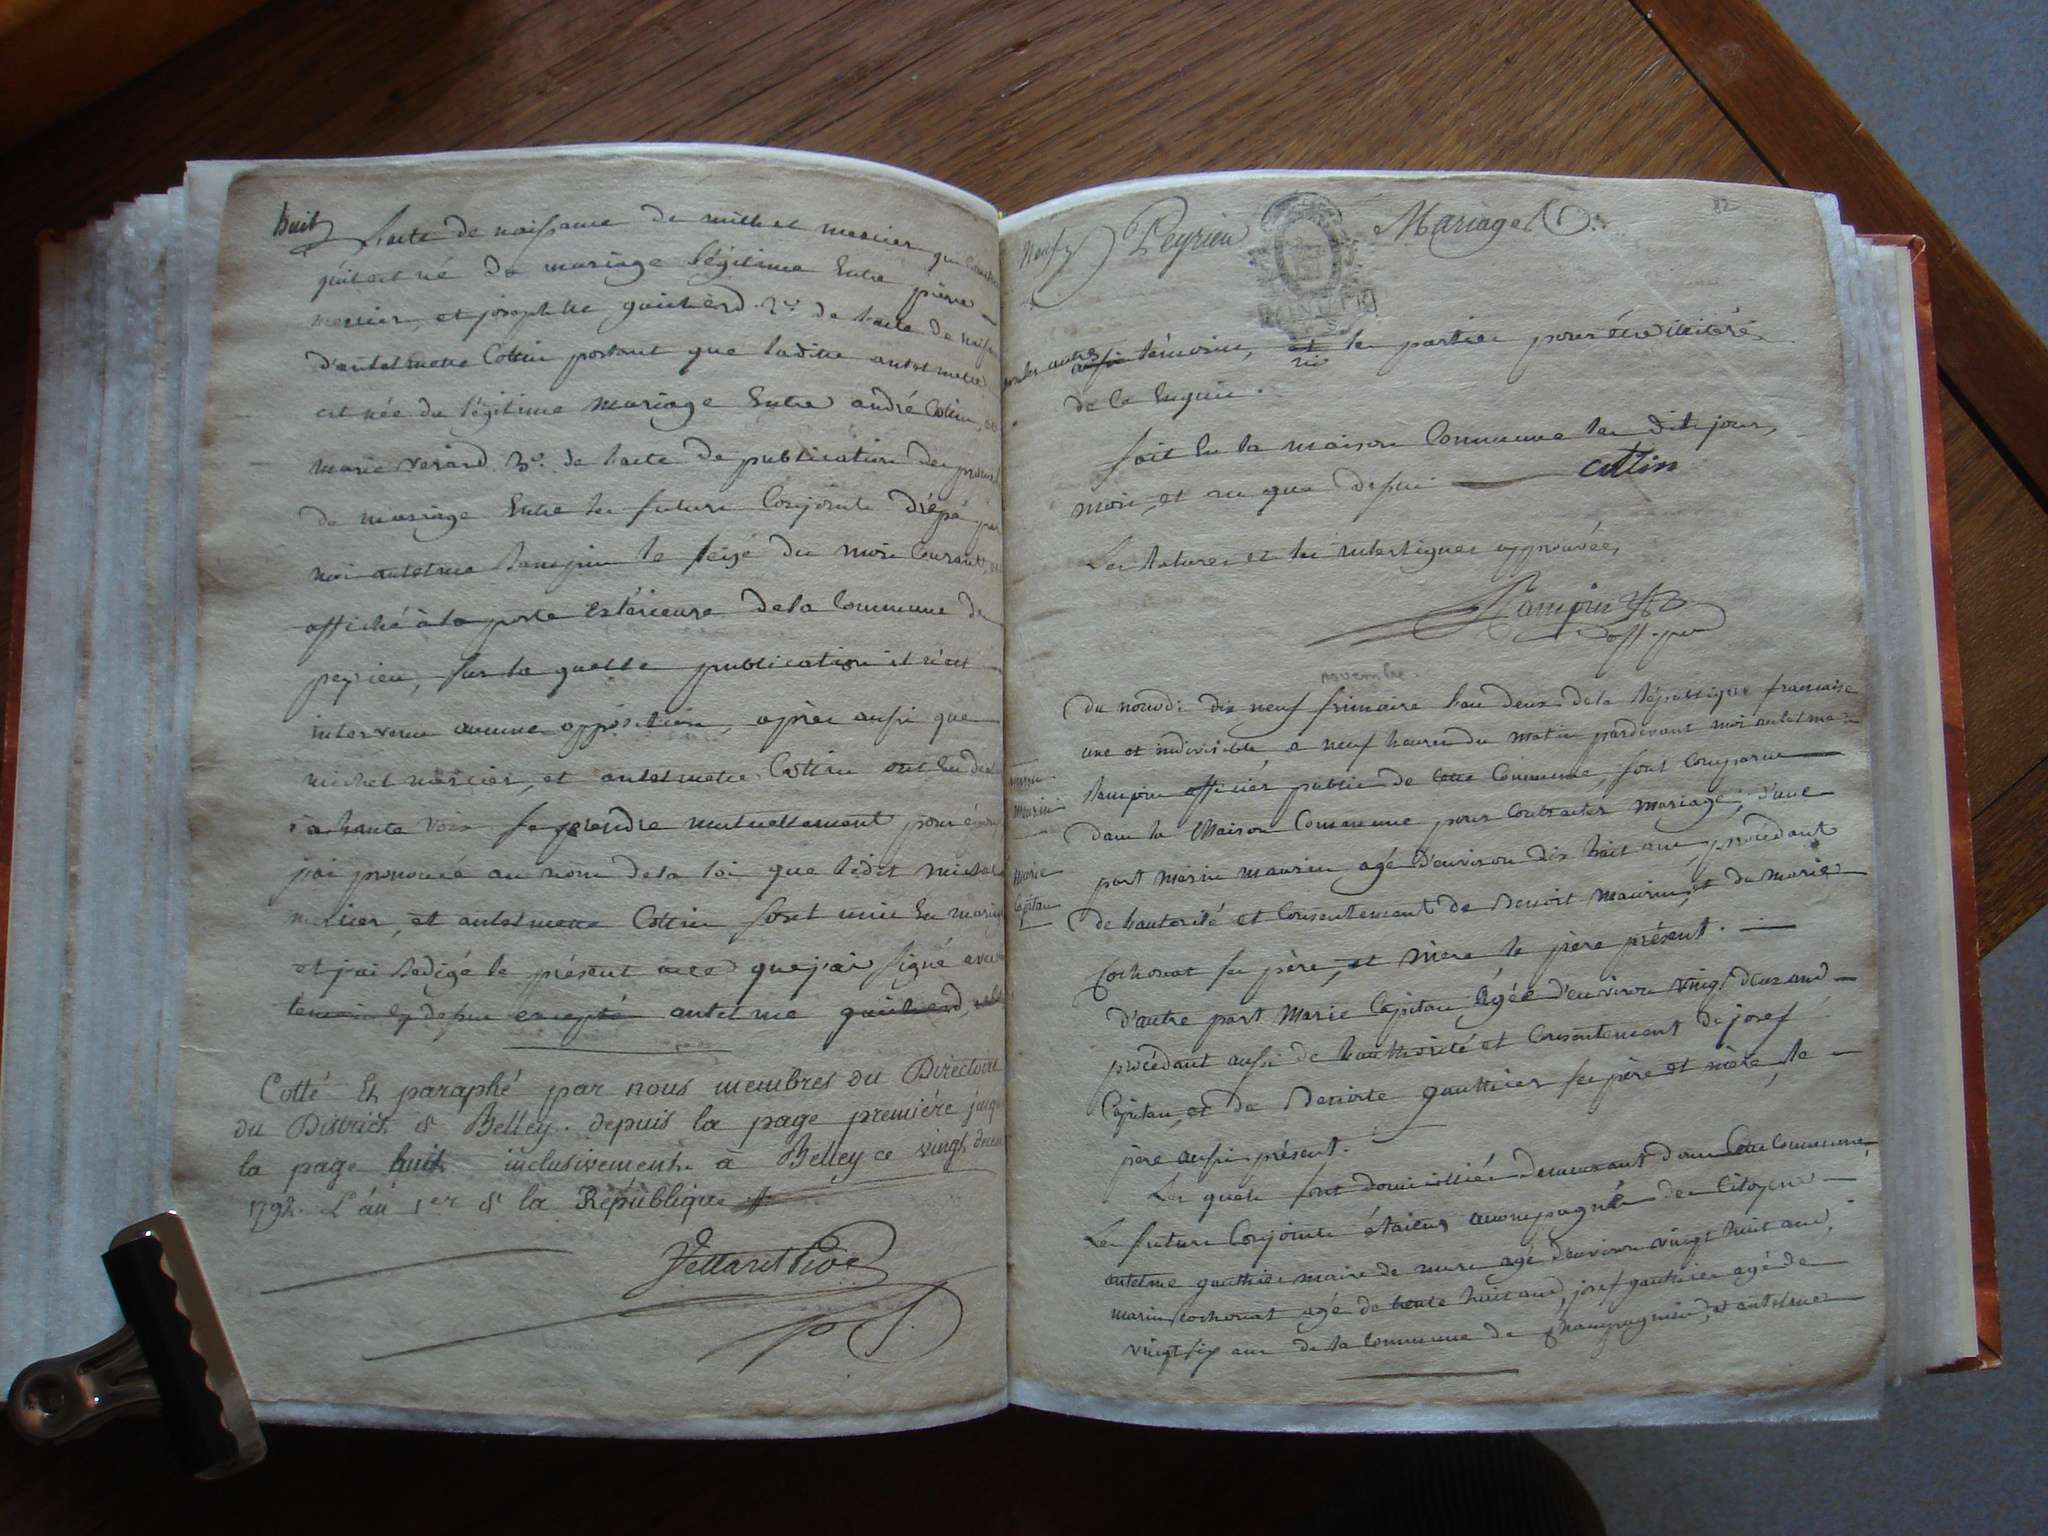 huit
l'acte de naissance de michel mercier que
est né du mariage légitime Entre pierre
mercier, et josephte guicherd. 2.º de l'acte de
d'antelmette Cottin portant que laditte antelmette
est née du légitime mariage Entre andré Cottin, et
marie verard. 3.º de l'acte de publication de
de mariage Entre les futurs Conjoints par
moi antelme le seize du mois Courant, et
affiché à la porte Extérieure de la Commune de
peyrieu, sur la quelle publication il n'est
intervenu aucune opposition, après aussi que
michel mercier, et antelmette Cottin ont
à haute voix se prendre mutuellement pour
j'ai prononcé au nom de la loi que ledit michel
mercier, et antelmette Cottin sont unis En mariage
et j'ai Rédigé le présent acte que j'ai signé avec
temoins depui excepté antelme guicherd
Cotté Et paraphé par nous membres du Directoire
du District de Belley. depuis la page première jusqu
la page huit inclusivement. à Belley ce vingt
1792. L'an 1er de la République
82
Neuf Peyrieu Mariages
autres témoins, et les parties pour être illitéré
ni
de ce Enquis.
fait En la maison Commune les dits jour,
mois, et an que depui cottin
Les Ratures et les interlignes approuvées,
off. pu
novembre.
du nonodi dix neuf frimaire l'an deux de la République francaise
une et indivisible, a neuf heures du matin pardevant moi antelme
officier public de cette Commune, sont Comparus
dans la Maison Commune pour Contracter mariage, d'une
marin
maurin
part marin maurin agé d'environ dix huit ans, procédant
marie
Capitan
de l'autorité et Consentement de Benoit Maurin, et de marie
Cochonat ses père, et mère le père présent.
d'autre part Marie Capitan, Agée d'environ vingt deux ans
procédant aussi de l'authorité et Consentement de josef
Capitan, et de Benoite gauthier ses père et mère, le
père aussi présent.
Les quels sont domicilliés demeurant dans Cette Commune
Les futurs Conjoints étaient accompagnés de Citoyens
antelme gauthier maire de agé d'environ vingt huit ans,
marin Cochonat agé de trente huit ans, josef gauthier agé de
vingt six ans de la Commune de Champagnieu, et antelme